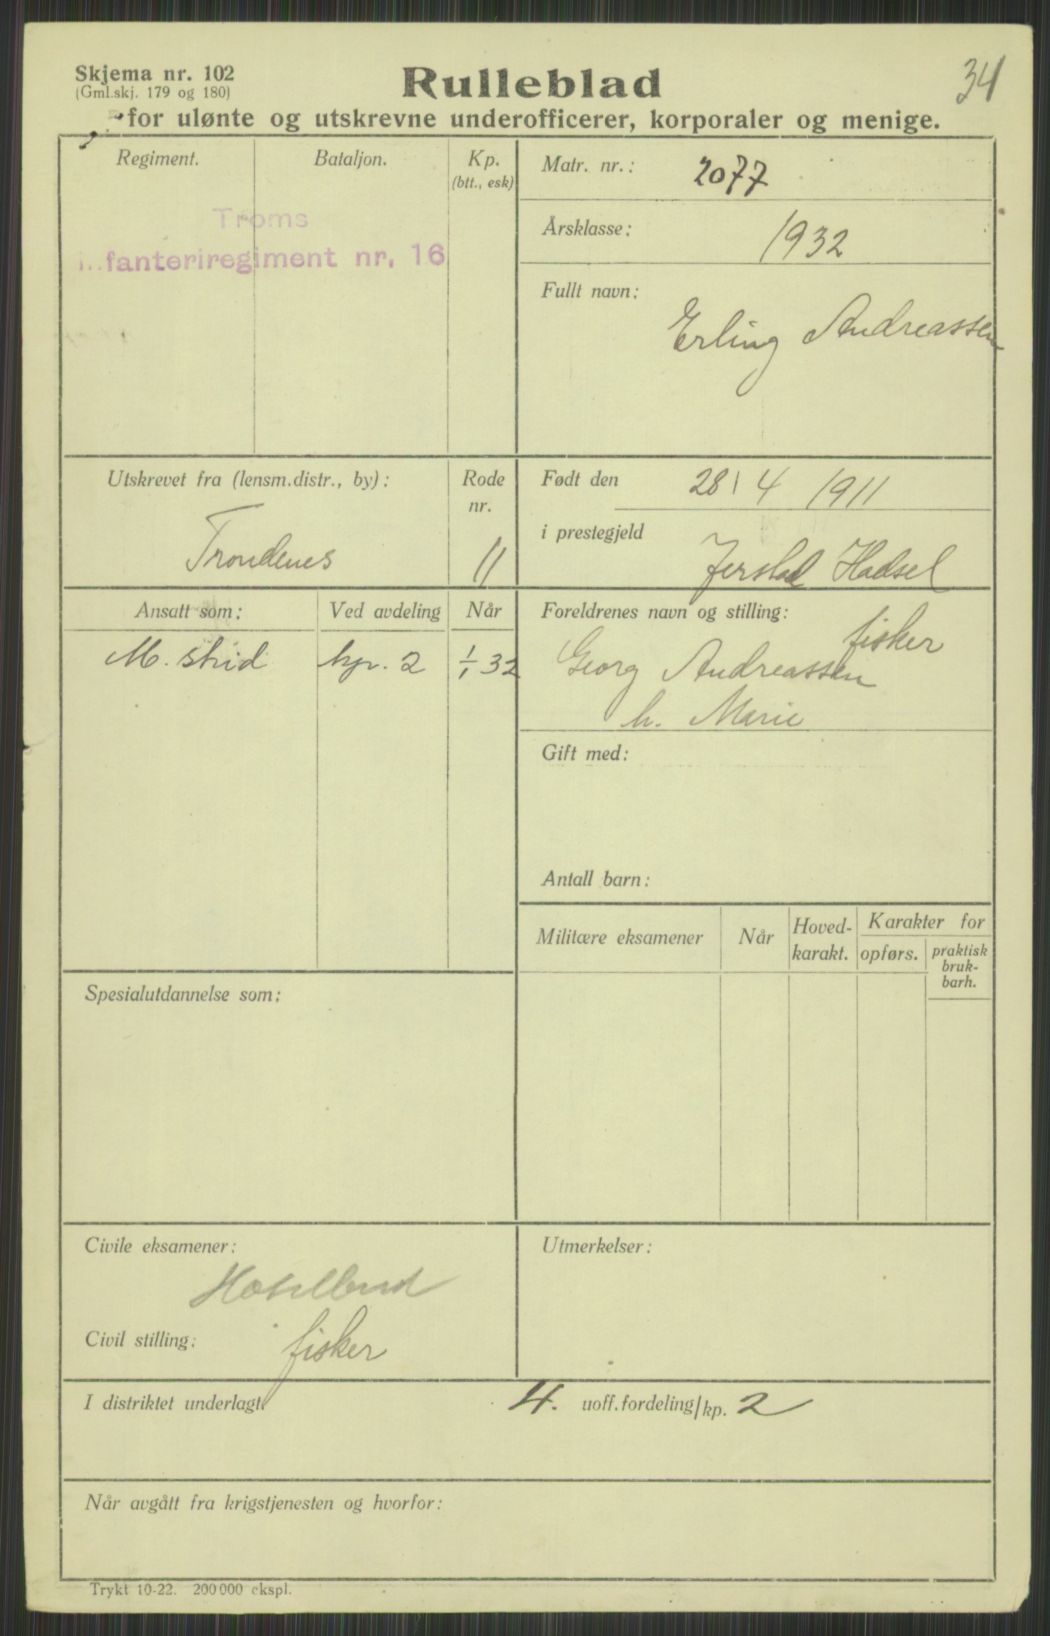 Skjema nr. 102
(Gml.skj. 179 og 180)
Rulleblad
34
for ulønte og utskrevne underofficerer, korporaler og menige.
Regiment. Bataljon. Kp.
(btt., esk)
Troms
fanteriregiment nr. 16
Matr. nr.: 2077
Årsklasse: 1932
Fullt navn:
Erling Andreassen
Utskrevet fra (lensm.distr., by): Rode
nr.
Trondenes 11
Født den 28/4 1911
i prestegjeld
Hadsel
Ansatt som: Ved avdeling Når
M. strid kp. 2 1/1 32
Foreldrenes navn og stilling:
fisker
Georg Andreassen
h. Marie
Gift med:
Antall barn:
Militære eksamener Når Hoved-
karakt. Karakter for
opførs. praktisk
bruk-
barh.
Spesialutdannelse som:
Civile eksamener:
Civil stilling: fisker
Utmerkelser:
I distriktet underlagt 4. uoff.fordeling/kp. 2
Når avgått fra krigstjenesten og hvorfor:
Trykt 10-22. 200 000 ekspl.